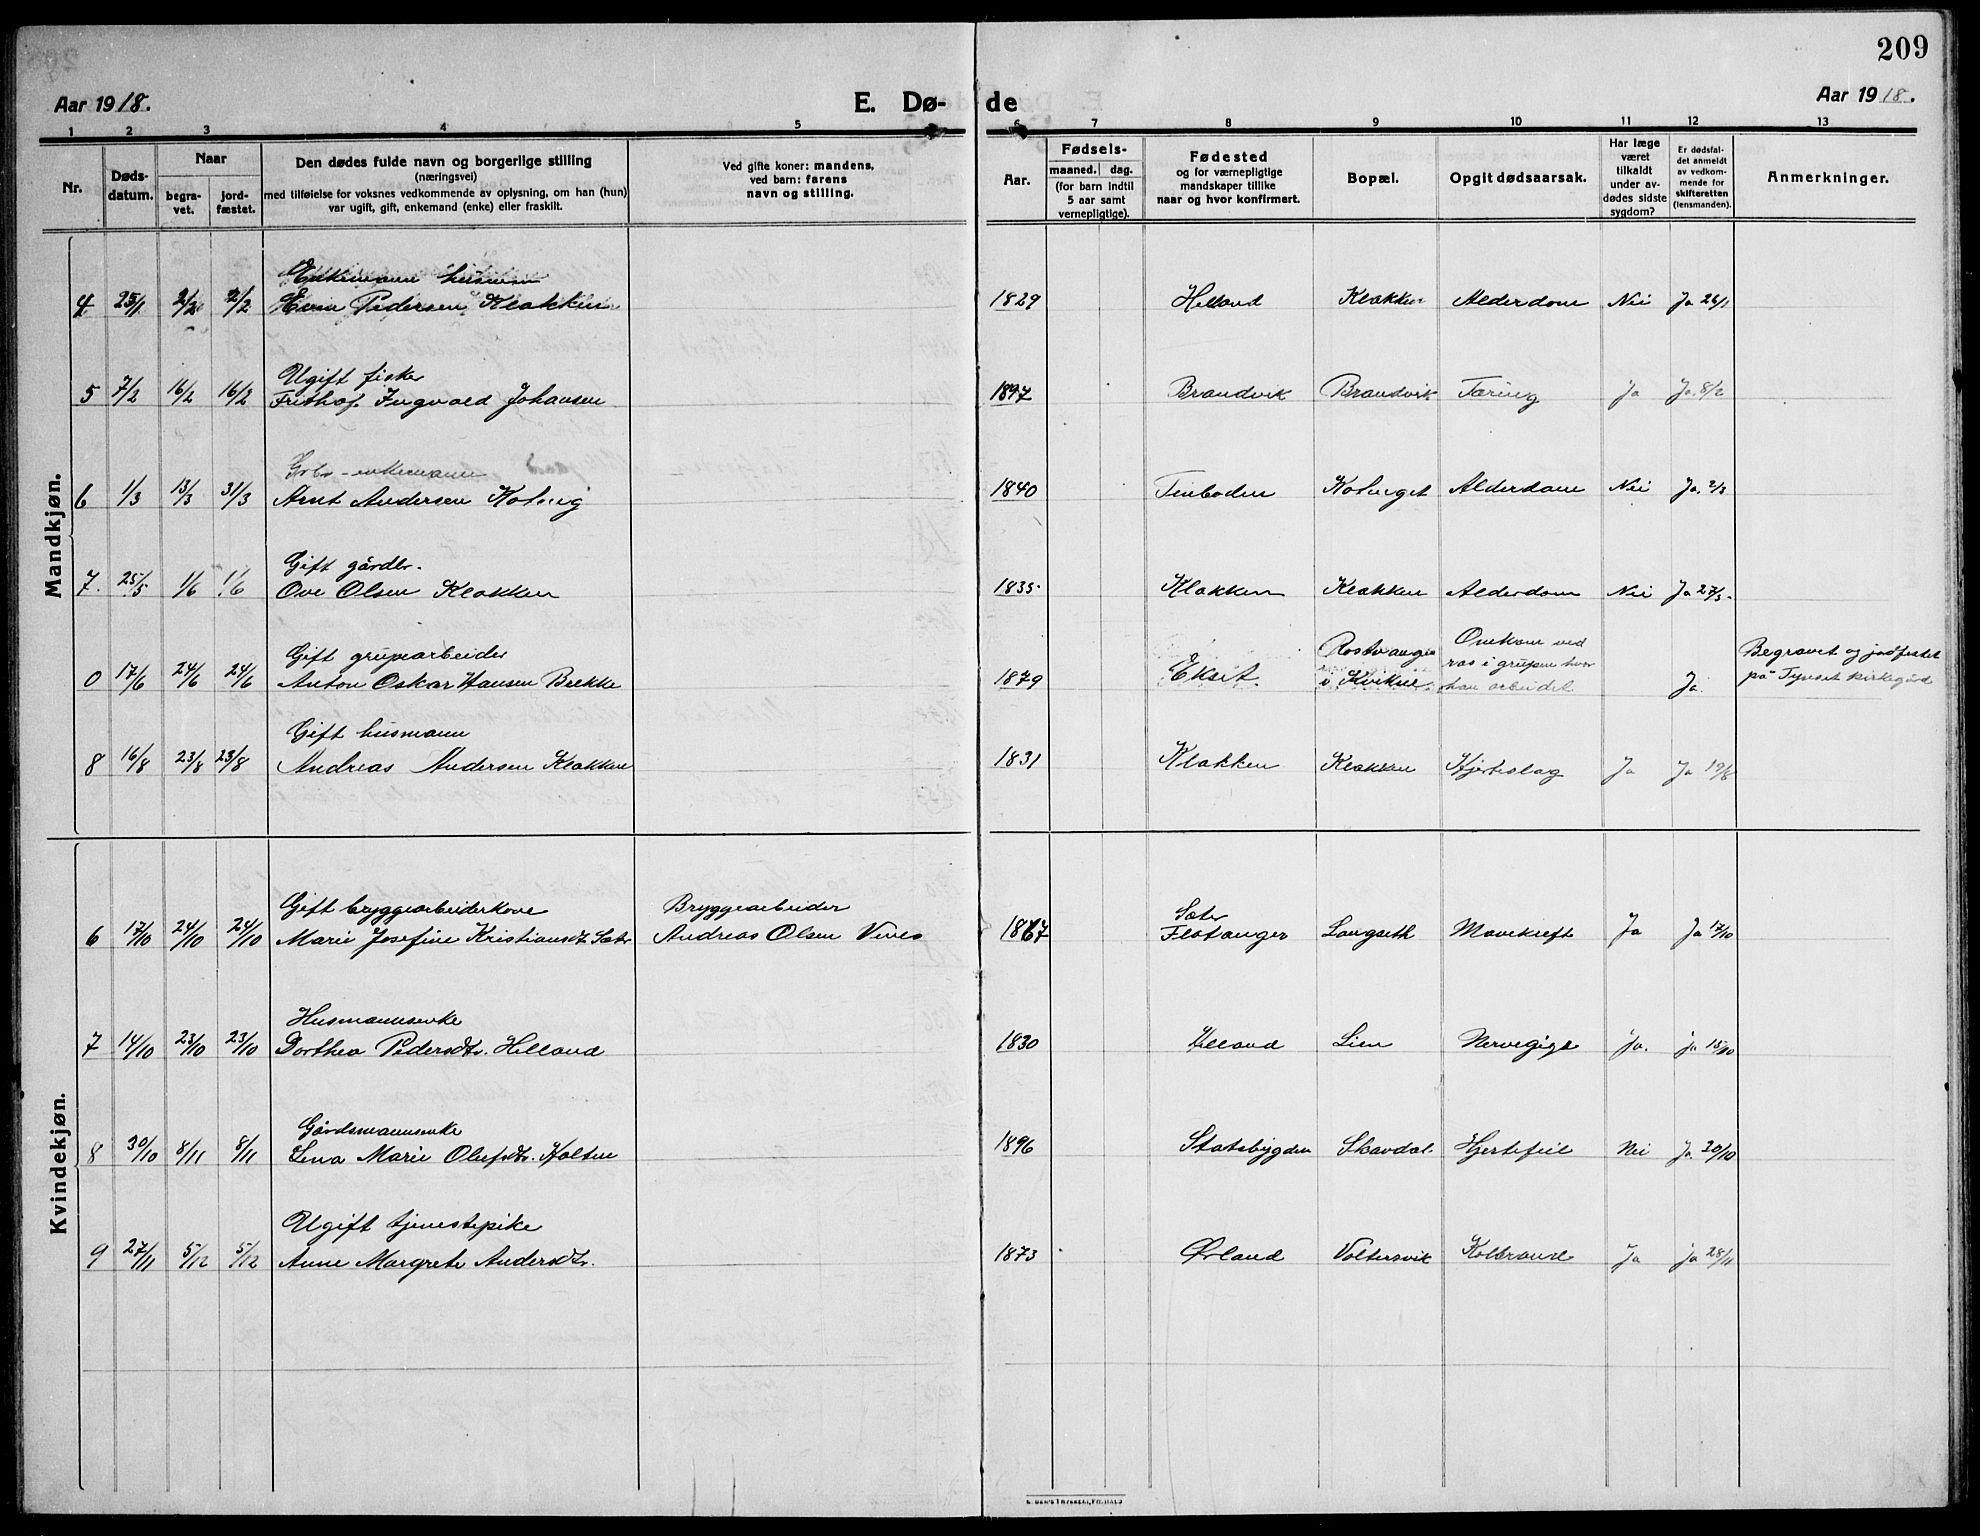 209
Aar 1918.
E. Dø-
de
Aar 1918.
1 2 3 4 5 6 7 8 9 10 11 12 13
Nr.
Døds-
datum.
Naar
begra-
vet.
jord-
fæstet.
Den dødes fulde navn og borgerlige stilling
(næringsvei)
med tilføielse for voksnes vedkommende av oplysning, om han (hun)
var ugift, gift, enkemand (enke) eller fraskilt.
Ved gifte koner: mandens,
ved barn: farens
navn og stilling.
Aar.
Fødsels-
maaned. dag.
(for barn indtil
5 aar samt
vernepligtige).
Fødested
og for værnepligtige
mandskaper tillike
naar og hvor konfirmert.
Bopæl.
Opgit dødsaarsak.
Har læge
været
tilkaldt
under av-
dødes sidste
sygdom?
Er dødsfal-
det anmeldt
av vedkom-
mende for
skifteretten
(lensmanden).
Anmerkninger.
Mandkjøn.
Enkemann husmann
4 25/1 2/2 2/2 Even Pedersen Klakken 1829 Helland Klakken Alderdom Nei Ja 26/1
Ugift fisker
5 7/2 16/2 16/2 Frithof Ingvald Johansen 1897 Brandvik Brandvik Tæring Ja Ja 8/2
Grbr - enkemann
6 1/3 13/3 31/3 Arnt Andersen 1840 Alderdom Nei Ja 2/3
Gift gårdbr.
7. 25/5 1/6 1/6 Ove Olsen Klakken 1835 Klakken Klakken Alderdom Nei Ja 27/5
Gift grupearbeider Rostvangen Omkom ved Begravet og jordfestet
0 17/6 24/6 24/6 Anton Oskar Hansen Brekke 1879 Ekset i Kvikne ras i grupen hvor Ja på Tynset kirkegård
han arbeidet
Gift husmann
8 16/8 23/8 23/8 Andreas Andersen Klakken 1831 Klakken Klakken Hjerteslag Ja Ja 19/8
Kvindekjøn.
Gift bryggearbeiderkone Bryggearbeider Sæter
6 17/10 24/10 24/10 Marie Josefine Kristiansdt. Sæter Andreas Olsen 1867 Flatanger Langseth Mavekreft Ja Ja 17/10
Husmannsenke
7 14/10 23/10 23/10 Dorthea Pedersdtr. Helland 1830 Helland Lien Nervegigt Ja. ja 15/10
Gårdsmannsenke
8 30/10 8/11 8/11 Lina Marie Olufsdtr. Holten 1896 Statsbygden Skavdal Hjertefeil Nei Ja 30/10
Ugift tjenestepike
9 27/11 5/12 5/12 Anne Margrete Andersdtr. 1873 Ørland Voltersvik Kolbrand Ja ja 28/11